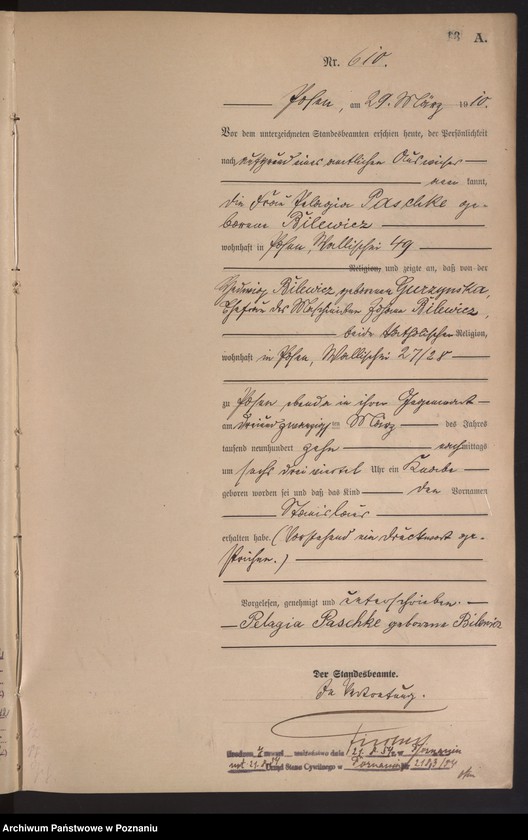 A.
Nr. 610.
Posen, am 29. März 1910.
Vor dem unterzeichneten Standesbeamten erschien heute, der Persönlichkeit
nach, aufgrund eines amtlichen Ausweises
kannt,
die Frau Pelagia Paschke ge-
borene Bilewicz
wohnhaft in Posen, Wallischei 49
Religion, und zeigte an, daß von der
Hedwig Bilewicz geborenen Gurzynska,
Ehefrau des Bilewicz,
beide katholischer Religion,
wohnhaft in Posen, Wallischei 27/28
zu Posen, ebenda in ihrer Gegenwart
am dreiundzwanzigsten März des Jahres
tausend neunhundert zehn nachmittags
um sechs dreiviertel Uhr ein Knabe
geboren worden sei und daß das Kind den Vornamen
Stanislaus
erhalten habe. (Vorstehend ein Druckwort ge-
strichen.)
Vorgelesen, genehmigt und unterschrieben.
Pelagia Paschke geborene Bilewicz
Der Standesbeamte.
In Vertretung.
Urząd Stanu Cywilnego w Poznaniu
Archiwum Państwowe w Poznaniu